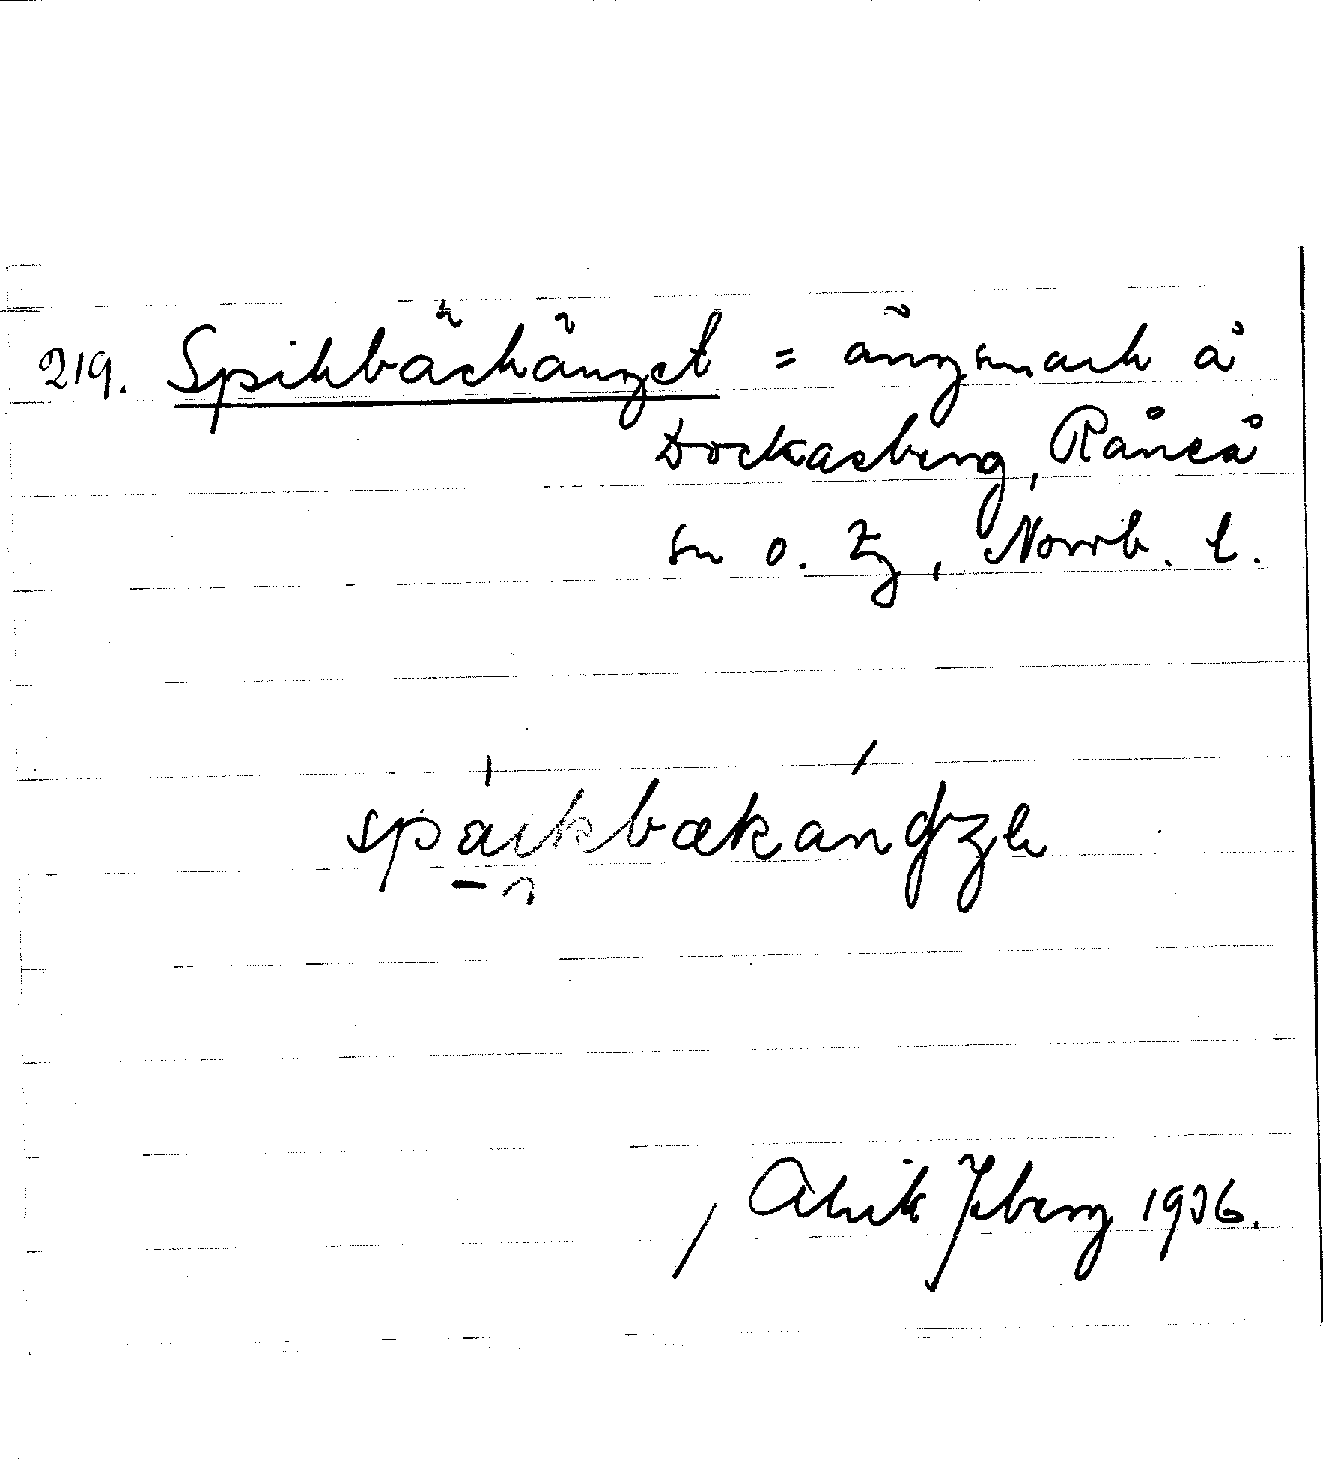 219. Spikbäckänget = ängsmark å
Dockasberg, Råneå
sn o. tg, Norrb. l.
spáikbækáng̶ʒe
Alrik Yberg 1936.